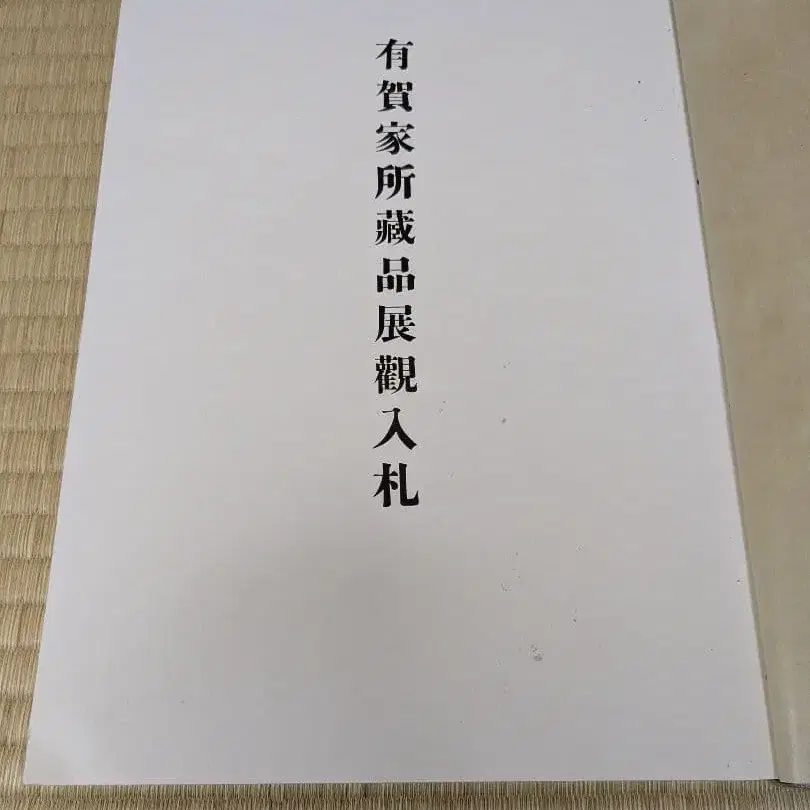 有賀家所藏品展觀入札